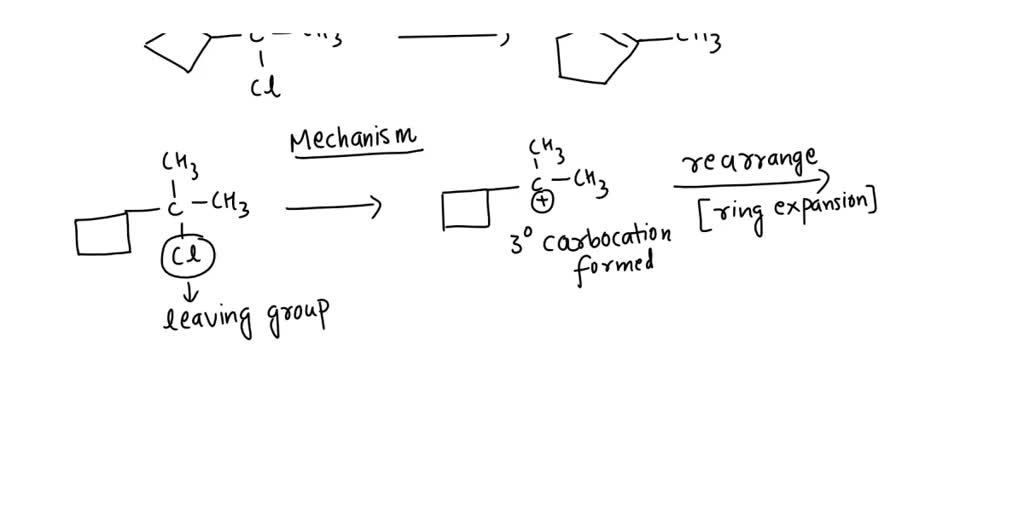 Cl
Mechanism
CH3
C -CH3
Cl
leaving group
CH3
C -CH3
+
3° carbocation
formed
rearrange
[ring expansion]